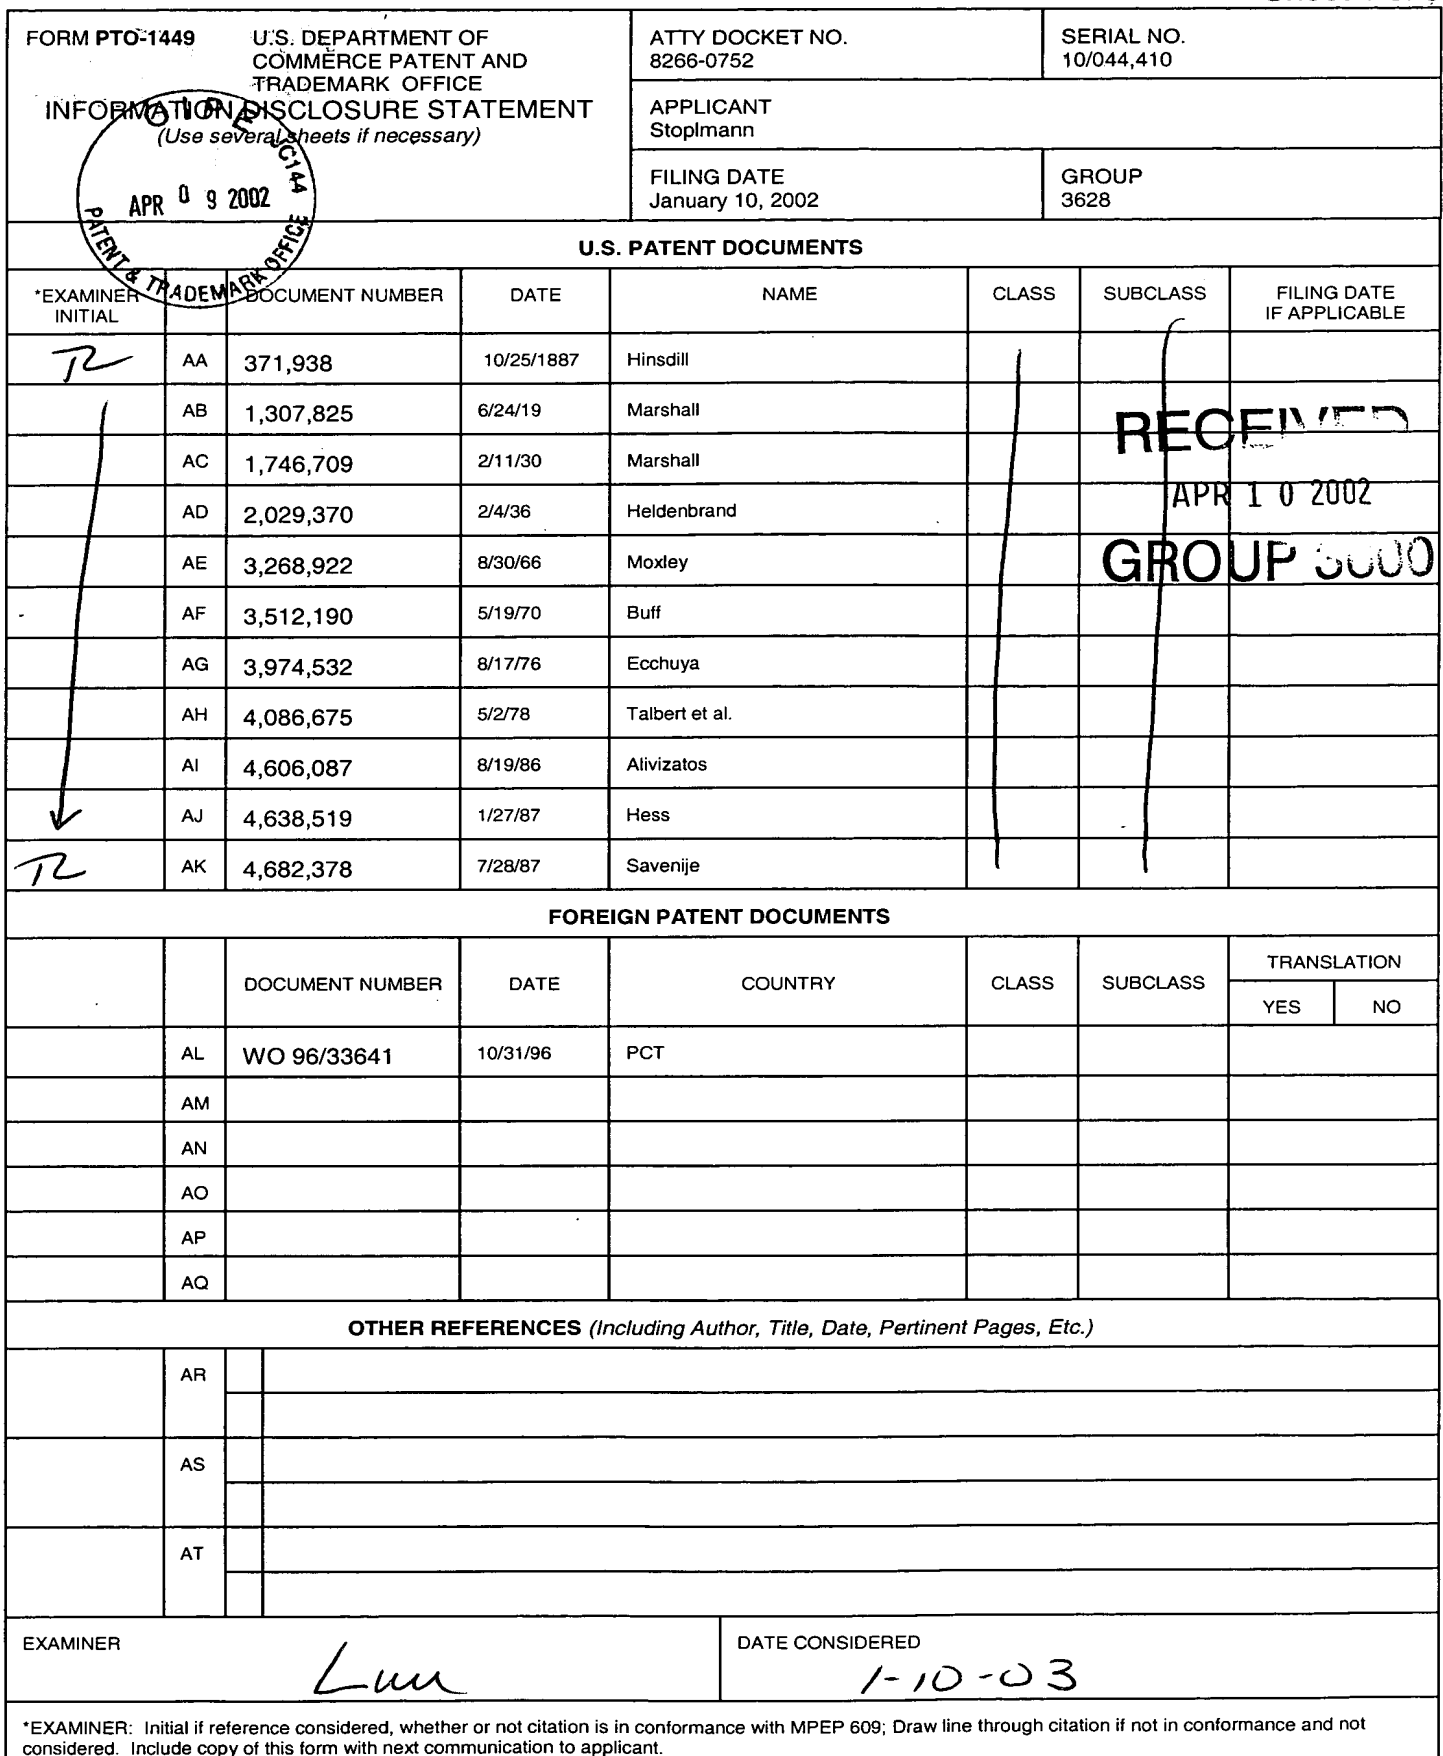 FORM PTO-1449
U.S. DEPARTMENT OF
COMMERCE PATENT AND
TRADEMARK OFFICE
INFORMATION DISCLOSURE STATEMENT
(Use several sheets if necessary)
ATTY DOCKET NO.
8266-0752
SERIAL NO.
10/044,410
APPLICANT
Stoplmann
FILING DATE
January 10, 2002
GROUP
3628
OIPE JC144
APR 0 9 2002
PATENT & TRADEMARK OFFICE
U.S. PATENT DOCUMENTS
*EXAMINER INITIAL DOCUMENT NUMBER DATE NAME CLASS SUBCLASS FILING DATE IF APPLICABLE
TL AA 371,938 10/25/1887 Hinsdill
AB 1,307,825 6/24/19 Marshall
RECEIVED
AC 1,746,709 2/11/30 Marshall
AD 2,029,370 2/4/36 Heldenbrand
APR 1 0 2002
AE 3,268,922 8/30/66 Moxley
GROUP 3600
AF 3,512,190 5/19/70 Buff
AG 3,974,532 8/17/76 Ecchuya
AH 4,086,675 5/2/78 Talbert et al.
AI 4,606,087 8/19/86 Alivizatos
AJ 4,638,519 1/27/87 Hess
TL AK 4,682,378 7/28/87 Savenije
FOREIGN PATENT DOCUMENTS
DOCUMENT NUMBER DATE COUNTRY CLASS SUBCLASS TRANSLATION
YES NO
AL WO 96/33641 10/31/96 PCT
AM
AN
AO
AP
AQ
OTHER REFERENCES (Including Author, Title, Date, Pertinent Pages, Etc.)
AR
AS
AT
EXAMINER
Luu
DATE CONSIDERED
1-10-03
*EXAMINER: Initial if reference considered, whether or not citation is in conformance with MPEP 609; Draw line through citation if not in conformance and not
considered. Include copy of this form with next communication to applicant.